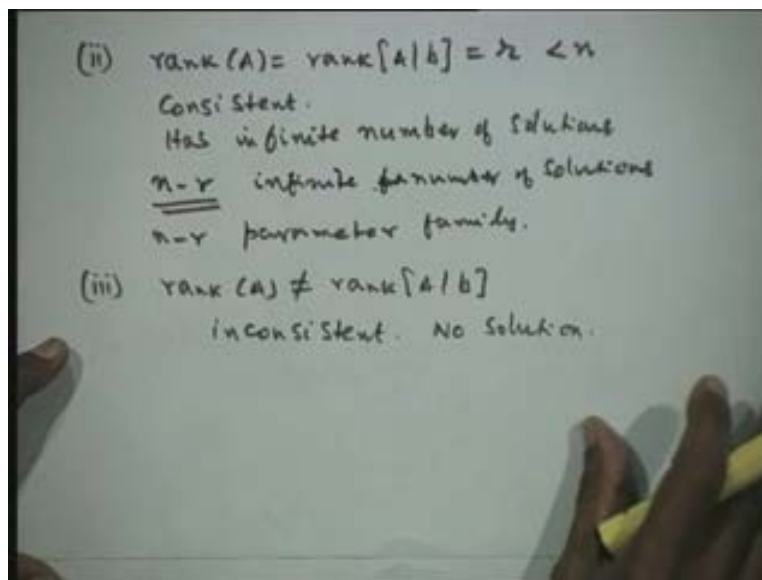 (ii) rank (A) = rank [A|b] = r < n
Consistent.
Has infinite number of solutions
n-r infinite number of solutions
n-r parameter family.
(iii) rank (A) ≠ rank [A|b]
inconsistent. No solution.